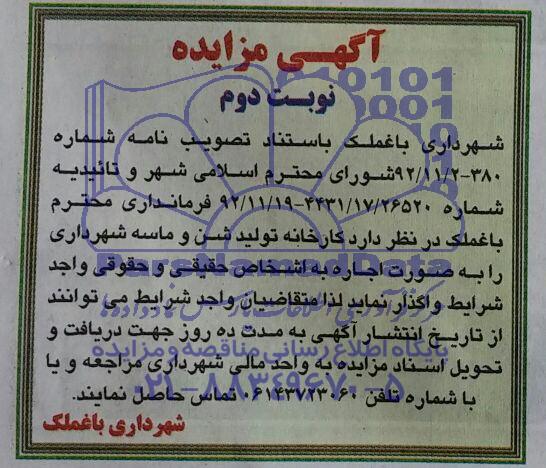 آگهی مزایده
نوبت دوم
شهرداری باغملک باستناد تصویب نامه شماره
۹۲/۱۱/۲-۳۸۰شورای محترم اسلامی شهر و تائیدیه
شماره ۹۲/۱۱/۱۹-۴۴۳۱/۱۷/۲۶۵۲۰ فرمانداری محترم
باغملک در نظر دارد کارخانه تولید شن و ماسه شهرداری
را به صورت اجاره به اشخاص حقیقی و حقوقی واجد
شرایط واگذار نماید لذا متقاضیان واجد شرایط می توانند
از تاریخ انتشار آگهی به مدت ده روز جهت دریافت و
تحویل اسناد مزایده به واحد مالی شهرداری مراجعه و یا
با شماره تلفن ۰۶۱۴۳۷۲۳۰۶۰ تماس حاصل نمایند.
شهرداری باغملک
ParsNamadData
پایگاه اطلاع رسانی مناقصه و مزایده
۰۲۱-۸۸۳۴۹۶۷۰-۵